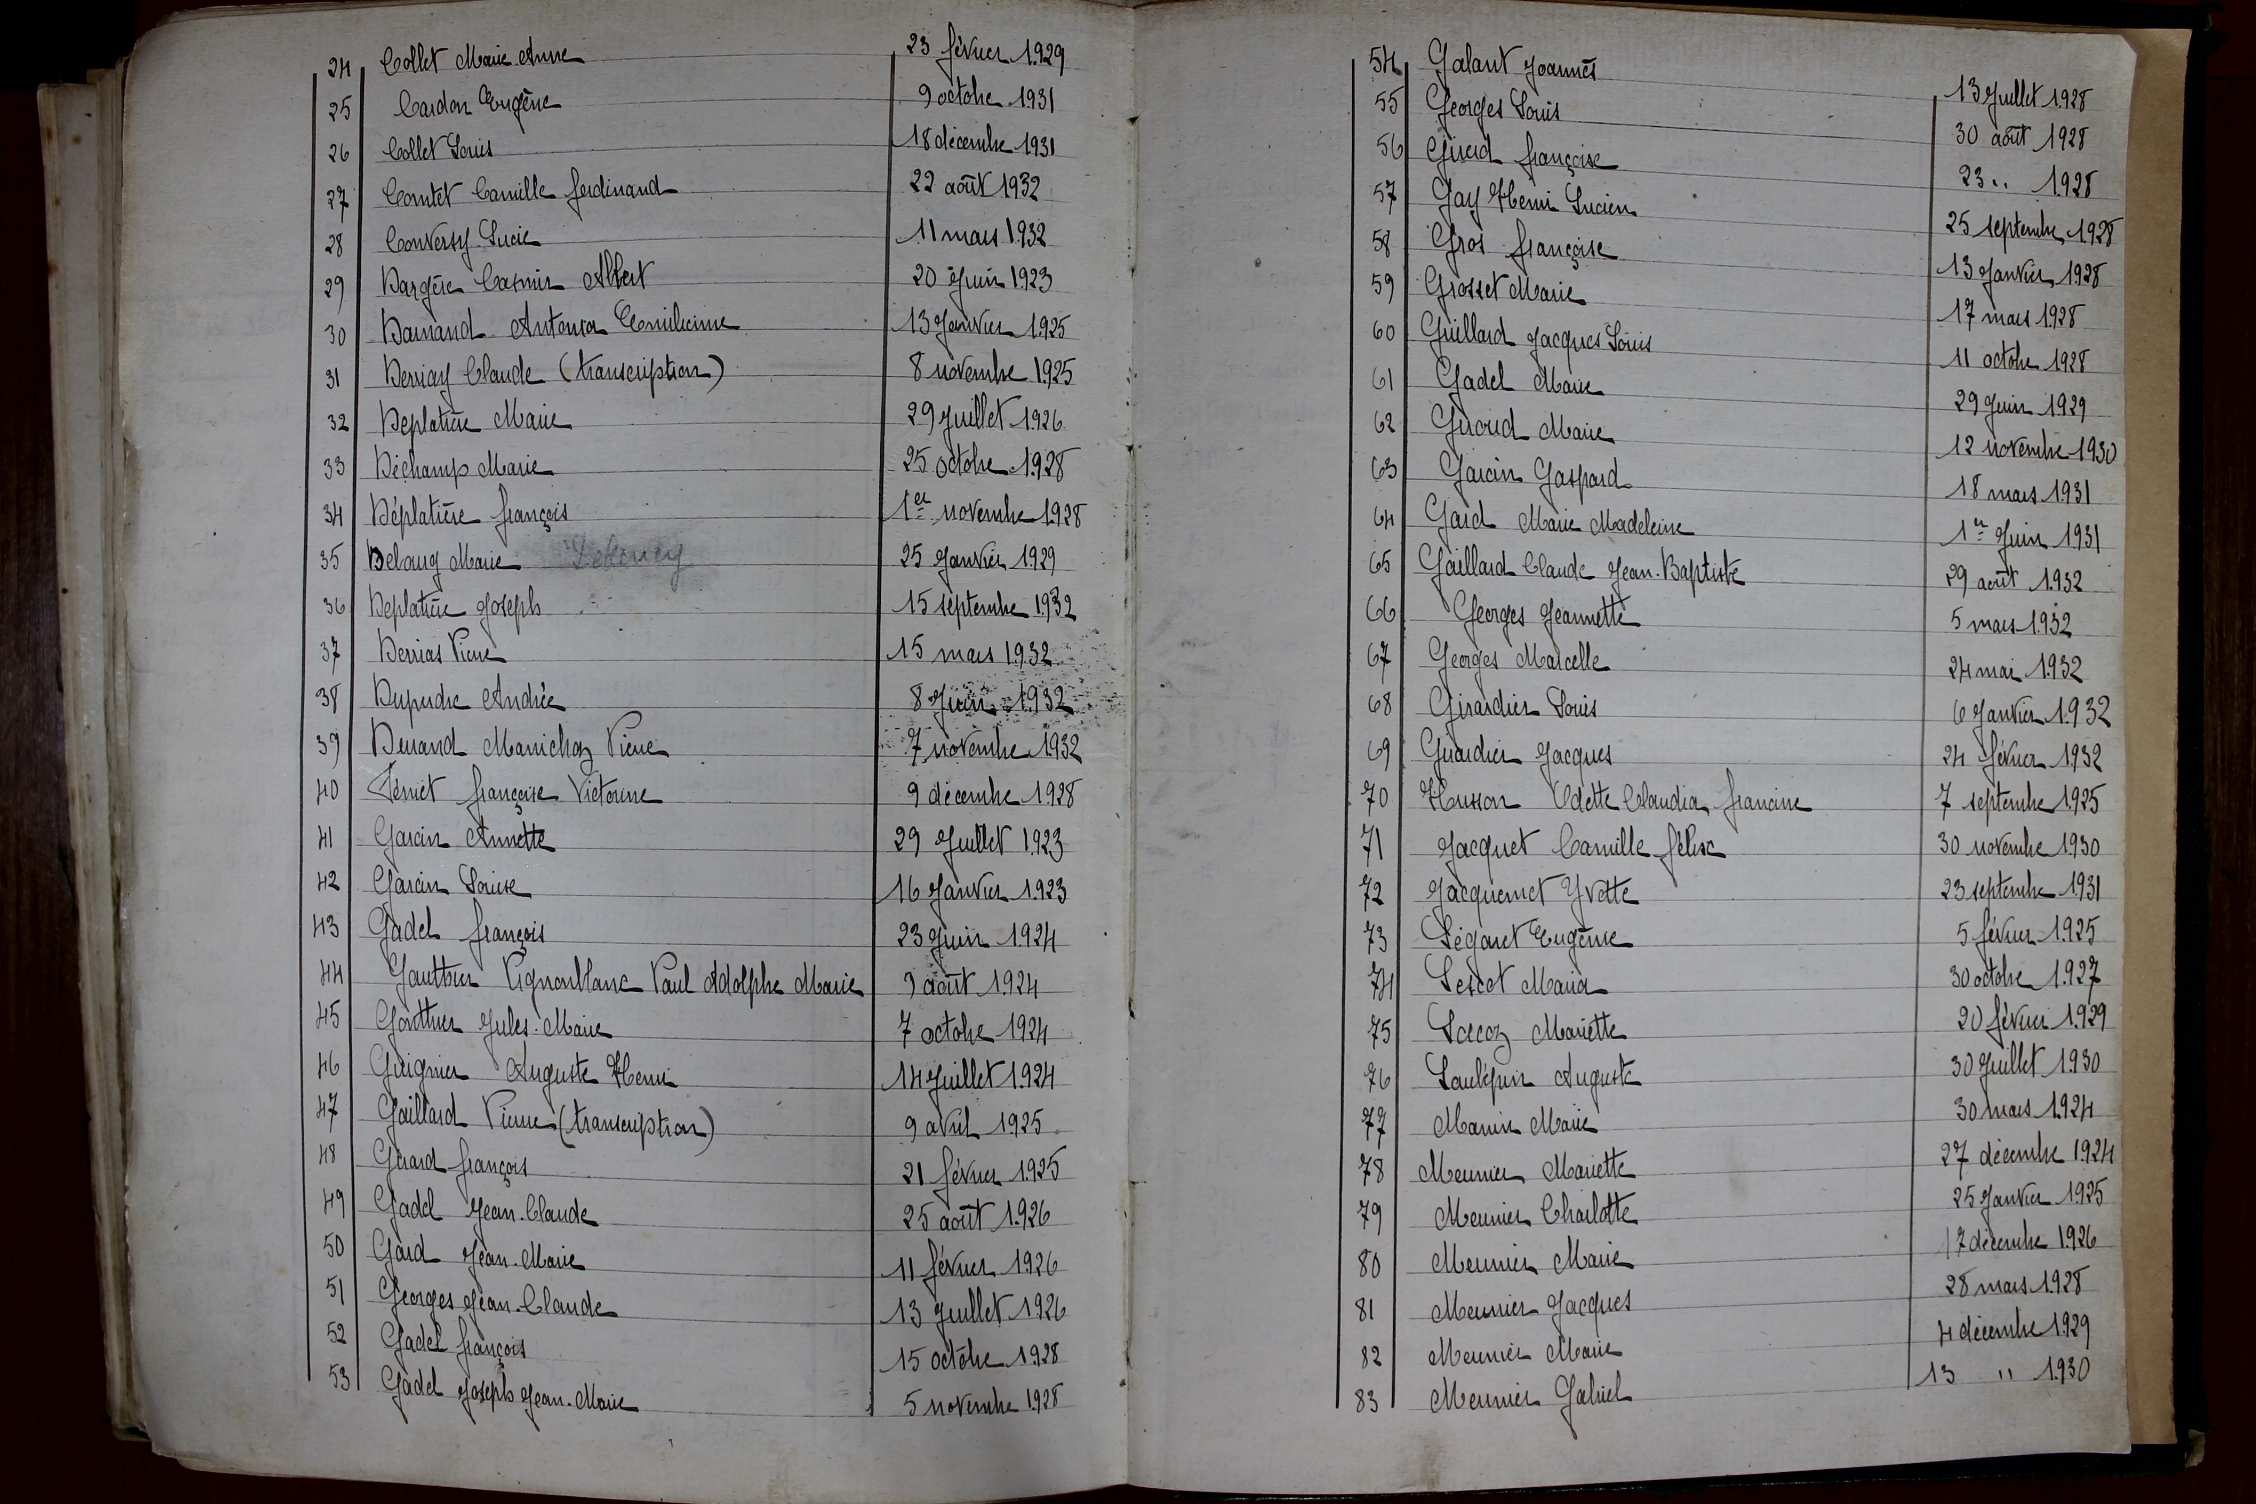 24 Collet Marie Anne 23 février 1929
25 Cardon Eugène 9 octobre 1931
26 Collet Louis 18 décembre 1931
27 Comtet Camille Ferdinand 22 août 1932
28 Conversy Lucie 11 mars 1932
29 Dargère Casimir Albert 20 Juin 1923
30 Darnand Antonia 13 Janvier 1925
31 Derriay Claude (transcription) 8 novembre 1925
32 Deplatière Marie 29 Juillet 1926
33 Déchamp Marie 25 octobre 1928
34 Déplatière François 1er novembre 1928
35 Marie 25 Janvier 1929
36 Deplatière Joseph 15 septembre 1932
37 Derrias Pierre 15 mars 1932
38 Duperdre Andrée 8 Juin 1932
39 Durand Manichoz Pierre 7 novembre 1932
40 Françoise Victorine 9 décembre 1928
41 Garcin Annette 29 Juillet 1923
42 Garcin Louise 16 Janvier 1923
43 Gadel François 23 Juin 1924
44 Gauthier Vignonblanc Paul Adolphe Marie 9 août 1924
45 Gonthier Jules-Marie 7 octobre 1924
46 Guignier Auguste Henri 14 Juillet 1924
47 Gaillard Pierre (transcription) 9 avril 1925
48 Girard François 21 février 1925
49 Gadel Jean-Claude 25 août 1926
50 Gard Jean-Marie 11 février 1926
51 Georges Jean-Claude 13 Juillet 1926
52 Gadel François 15 octobre 1928
53 Gadel Joseph Jean-Marie 5 novembre 1928
54 Galant Joannès 13 Juillet 1928
55 Georges Louis 30 août 1928
56 Girerd Françoise 23 " 1928
57 Gay Henri Lucien 25 septembre 1928
58 Gros Françoise 13 Janvier 1928
59 Grosset Marie 17 mars 1928
60 Guillard Jacques Louis 11 octobre 1928
61 Gadel Marie 29 Juin 1929
62 Giroud Marie 12 novembre 1930
63 Garcin Gaspard 18 mars 1931
64 Gard Marie Madeleine 1er Juin 1931
65 Gaillard Claude Jean-Baptiste 29 août 1932
66 Georges Jeannette 5 mars 1932
67 Georges Marcelle 24 mai 1932
68 Girardier Louis 6 Janvier 1932
69 Girardier Jacques 24 février 1932
70 Husson Odette Claudia Francine 7 septembre 1925
71 Jacquet Camille Félix 30 novembre 1930
72 Jacquemet Yvette 23 septembre 1931
73 Légaret Eugénie 5 février 1925
74 Lescot Maria 30 octobre 1927
75 Mariette 20 février 1929
76 Laulépin Auguste 30 Juillet 1930
77 Manin Marie 30 mars 1924
78 Meunier Mariette 27 décembre 1924
79 Meunier Charlotte 25 Janvier 1925
80 Meunier Marie 17 décembre 1926
81 Meunier Jacques 28 mars 1928
82 Meunier Marie 4 décembre 1929
83 Meunier Gabriel 13 " 1930